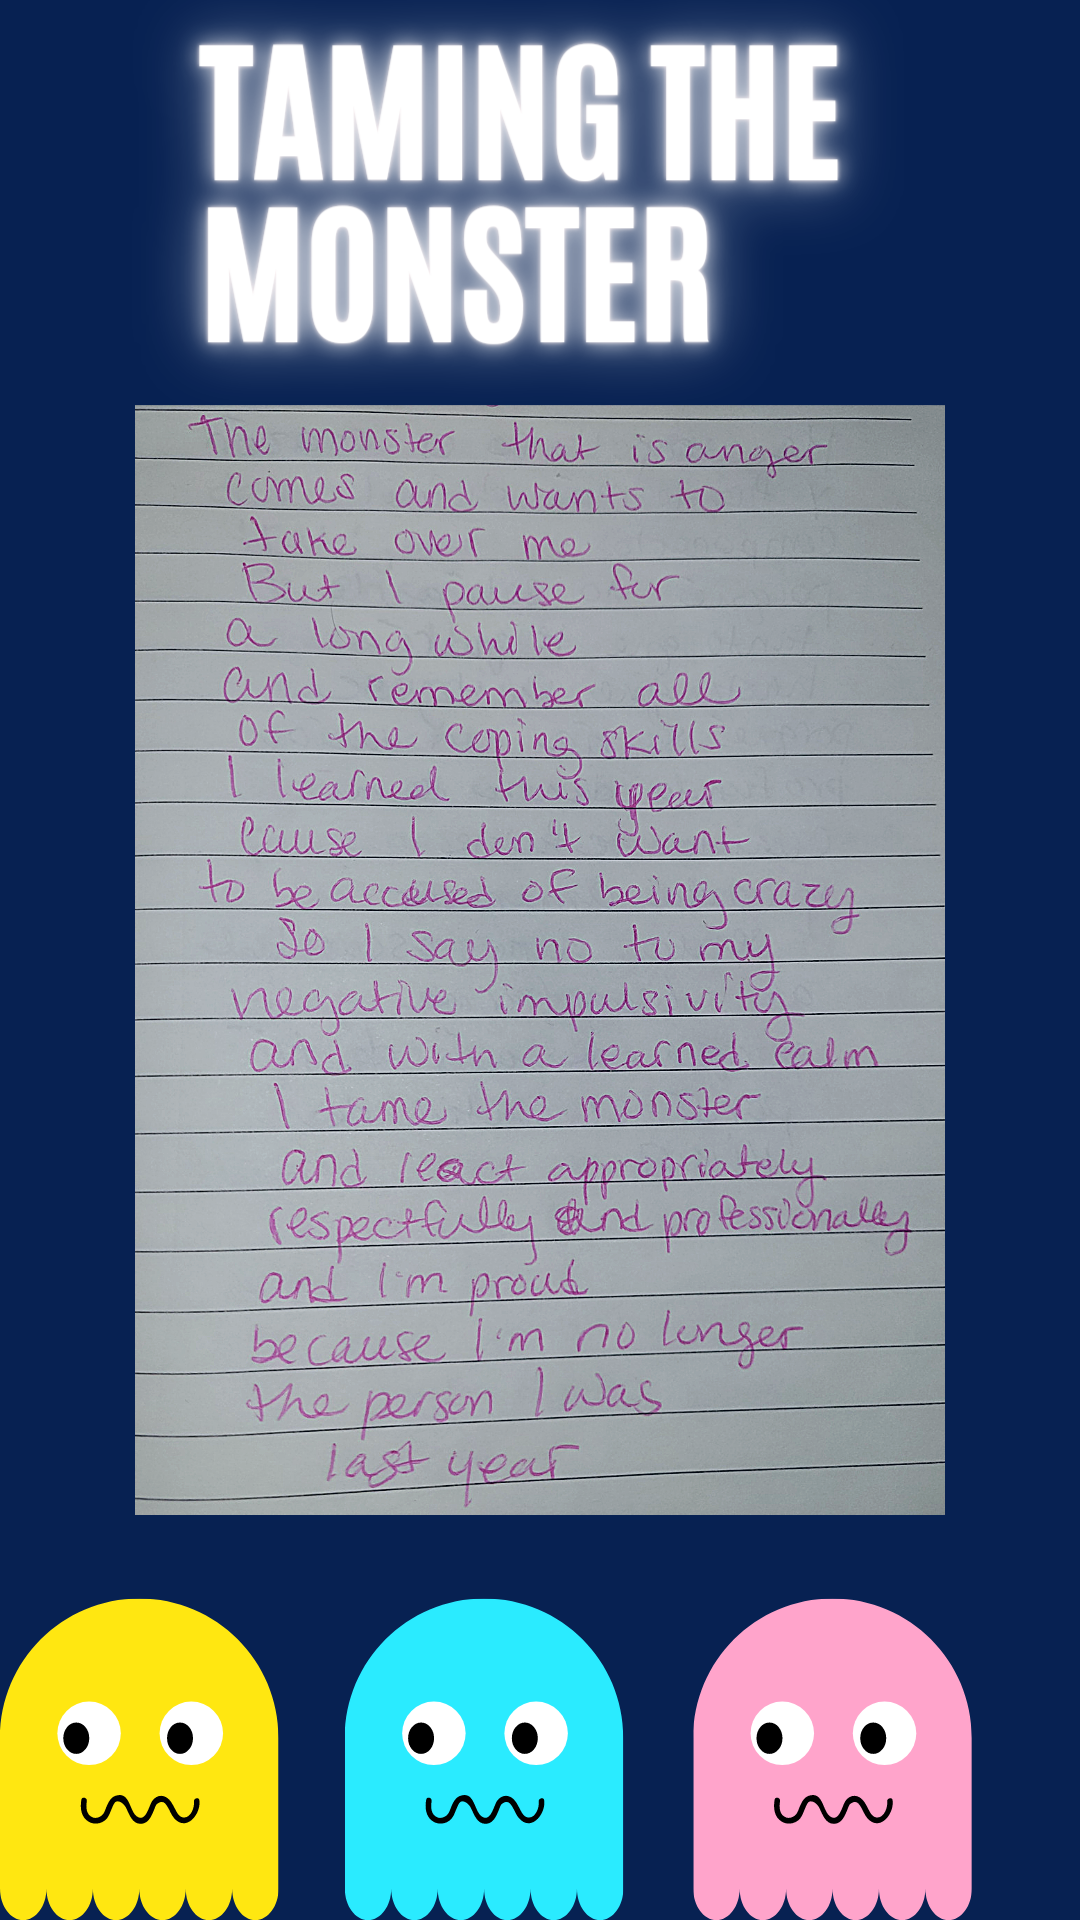 TAMING THE
MONSTER
The monster that is anger
comes and wants to
take over me
But I pause for
a long while
and remember all
of the coping skills
I learned this year
cause I don't want
to be accused of being crazy
So I say no to my
negative impulsivity
and with a learned calm
I tame the monster
and react appropriately
respectfully and professionally
and I'm proud
because I'm no longer
the person I was
last year